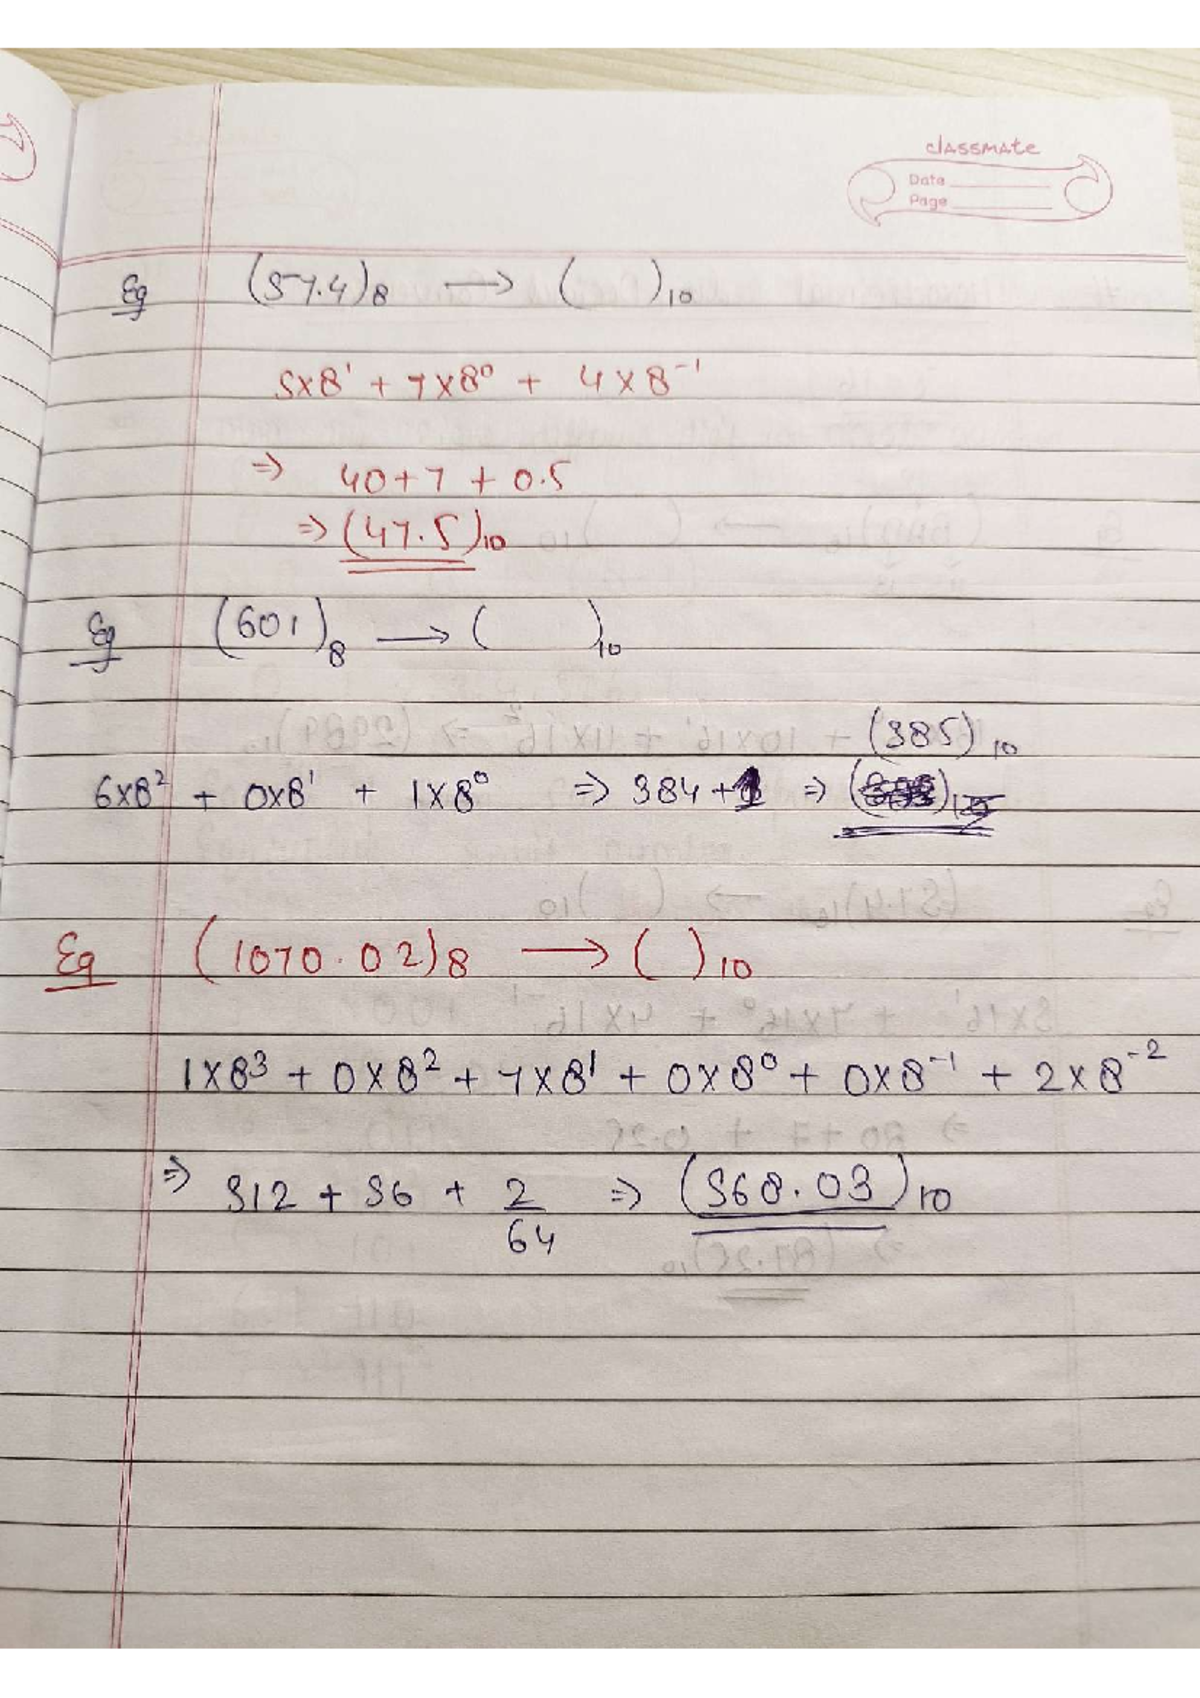 classmate
Date
Page
Eg (57.4)₈ → ( )₁₀
5×8¹ + 7×8⁰ + 4×8⁻¹
⇒ 40+7 + 0.5
⇒ (47.5)₁₀
Eg (601)₈ → ( )₁₀
(385)₁₀
6×8² + 0×8¹ + 1×8⁰ ⇒ 384+1 ⇒
Eg (1070.02)₈ → ( )₁₀
1×8³ + 0×8² + 7×8¹ + 0×8⁰ + 0×8⁻¹ + 2×8⁻²
⇒ 512 + 56 + 2/64 ⇒ (568.03)₁₀